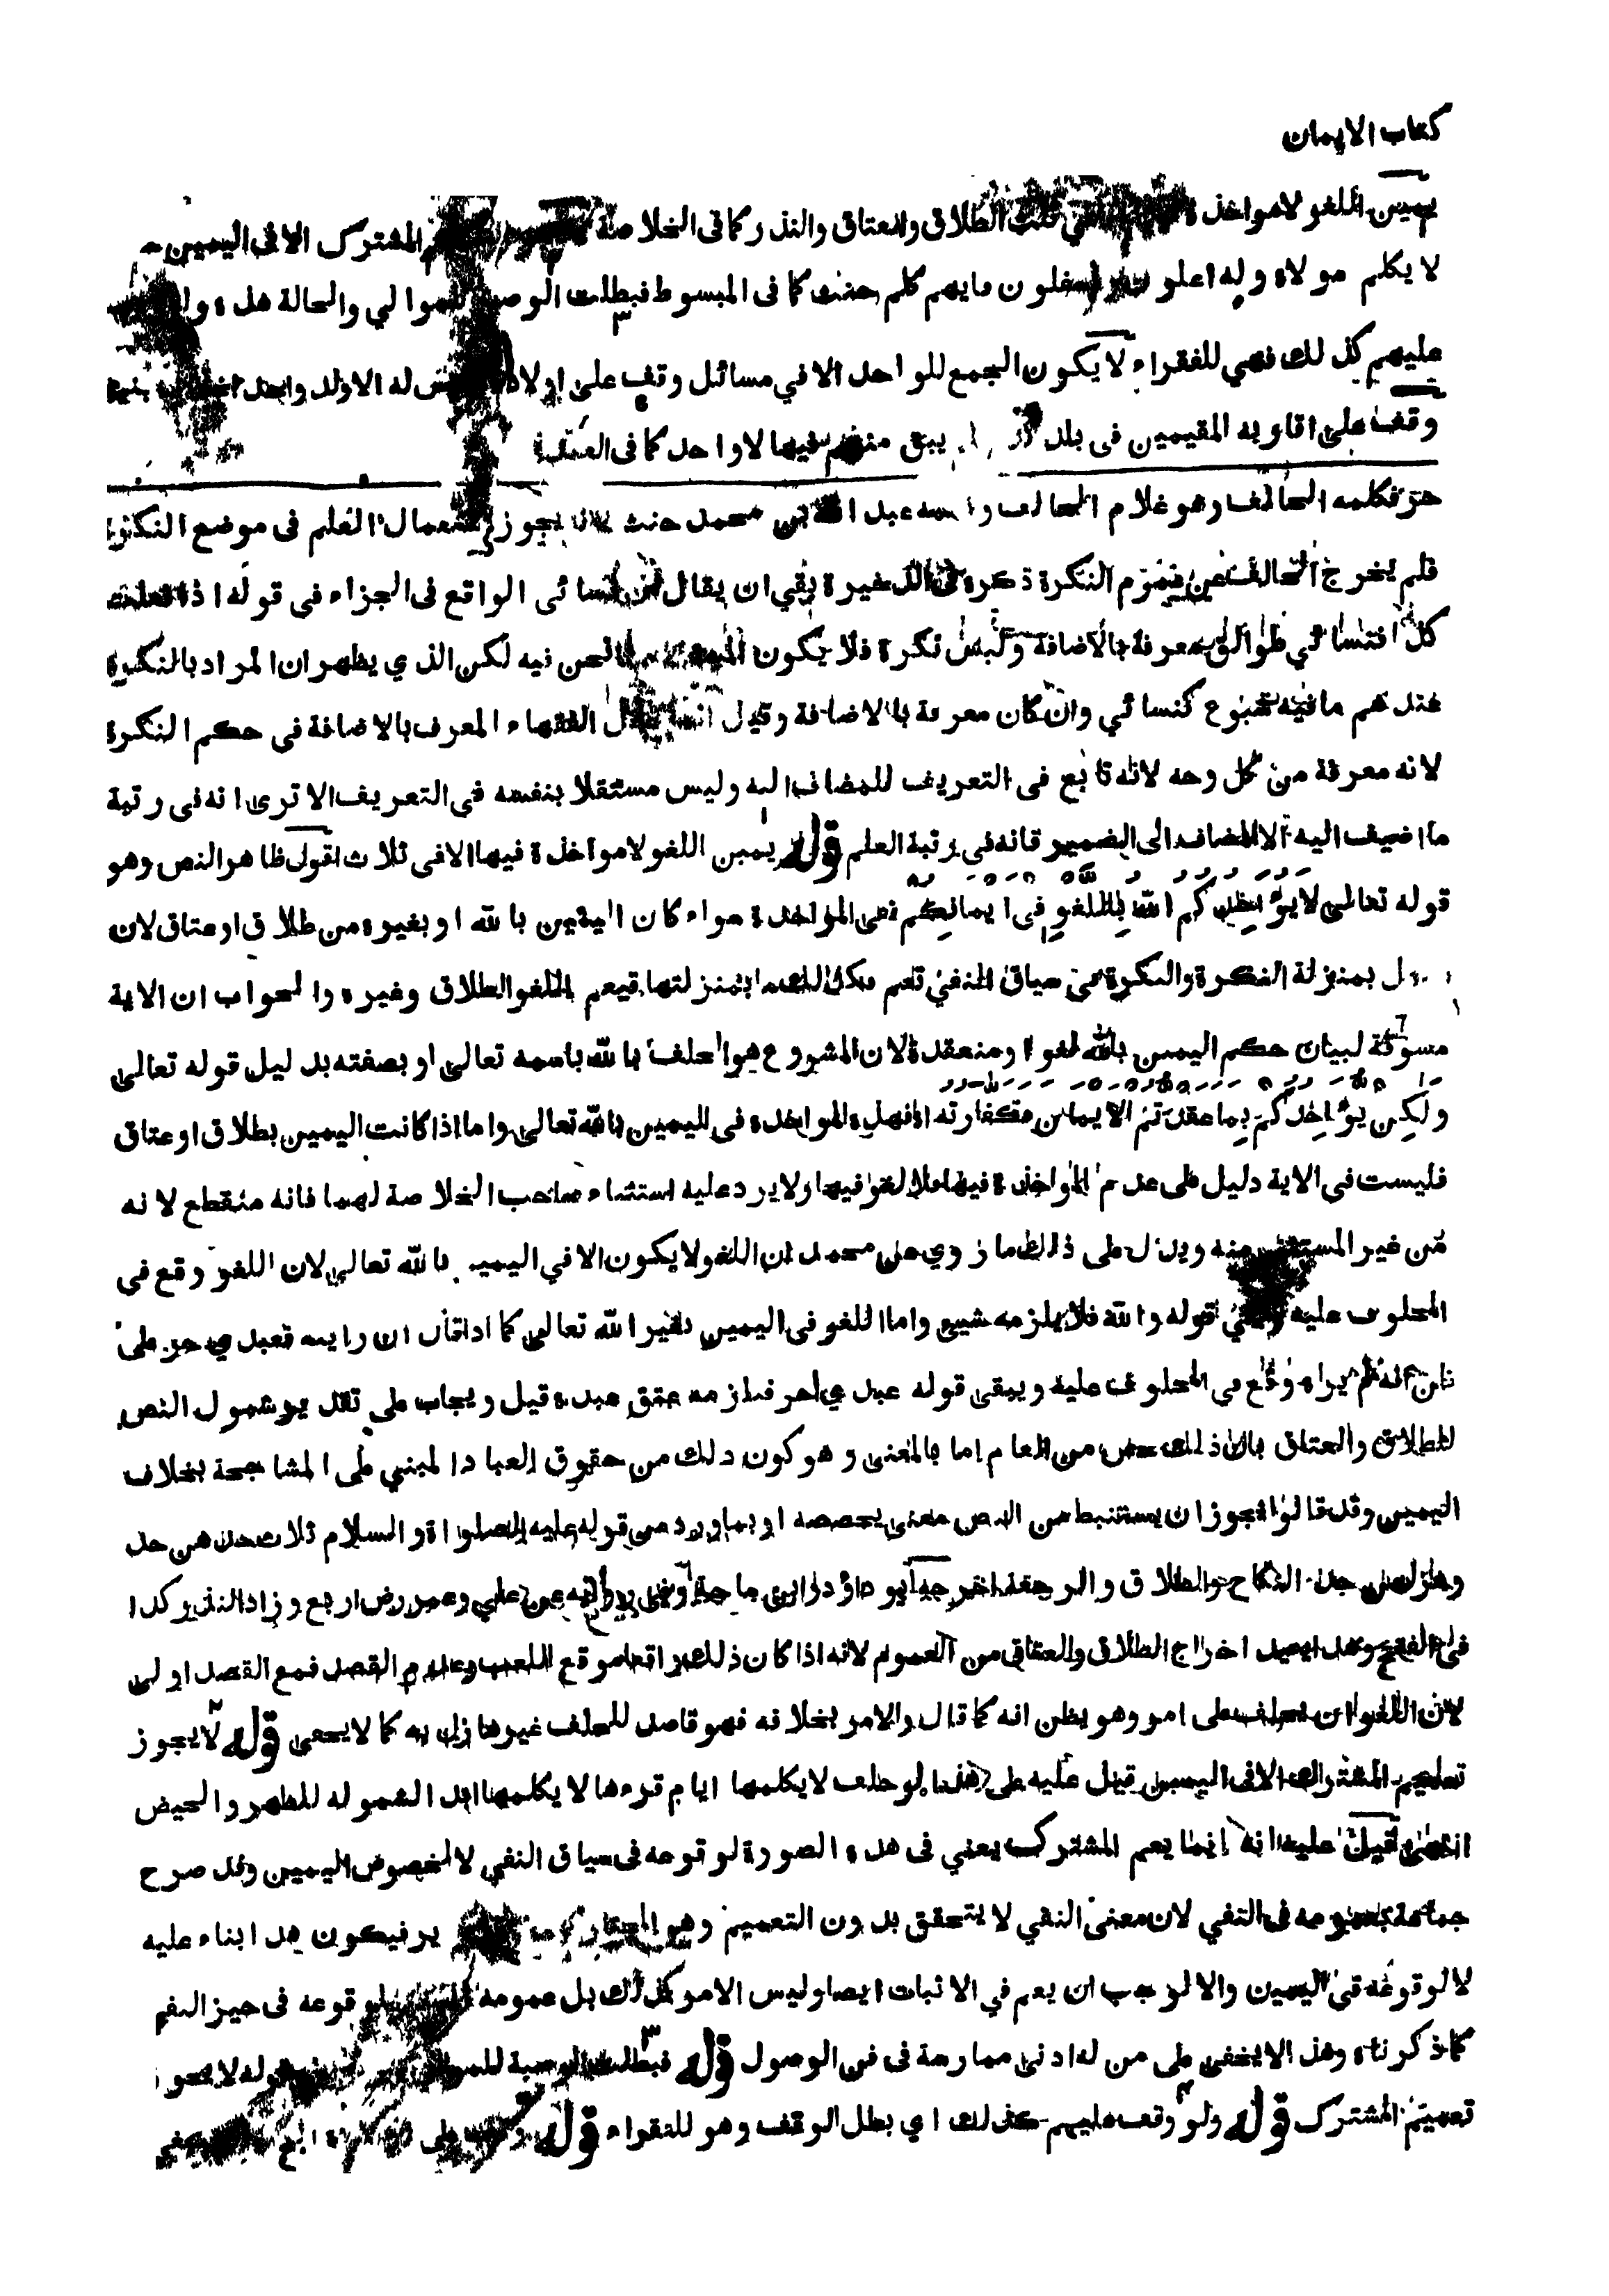 كتاب الايمان
يمين اللغو لا مواخذة الطلاق والعتاق والنذر كما فى الخلاصة المشترك الا فى اليمين
لا يكلم مولاه وله اعلون اسفلون فايهم كلم حنث كما فى المبسوط فبطلت الوصية للموالي والحالة هذه ولو
عليهم كذلك فهي للفقراء لا يكون الجمع للواحد الا في مسائل وقف على اولاده وليس له الا ولد واحد
وقف على اقاربه المقيمين فى بلد يبق منهم فيها الا واحد كما فى العمدة
حر فكلمه الحالف وهو غلام الحالف واسمه عبد الله بن محمد حنث يجوز استعمال العلم فى موضع النكرة
فلم يخرج الحالف من عموم النكرة ذكره فى الذخيرة بقي ان يقال ان نسائى الواقع فى الجزاء فى قوله اذا فعلت
كذا فنسائي طوالق معرفة بالاضافة وليس نكرة فلا يكون نحن فيه لكن الذي يظهر ان المراد بالنكرة
عندهم ما فيه شيوع كنسائي وان كان معرفة بالاضافة وقيل الفقهاء المعرف بالاضافة في حكم النكرة
لانه معرفة من كل وجه لانه تابع فى التعريف للمضاف اليه وليس مستقلا بنفسه في التعريف الا ترى انه فى رتبة
ما اضيف اليه الا المضاف الى الضمير فانه فى رتبة العلم قوله يمين اللغو لا مواخذة فيها الا فى ثلاث اقول ظاهر النص وهو
قوله تعالى لا يؤاخذكم الله باللغو فى ايمانكم نفى المواخذة سواء كان اليمين بالله او بغيره من طلاق او عتاق لان
بمنزلة النكرة والنكرة فى سياق النفي تعم فكذلك ما بمنزلتها فيعم اللغو الطلاق وغيره والجواب ان الاية
مسوقة لبيان حكم اليمين بالله لغوا ومنعقدة لان المشروع هو الحلف بالله باسمه تعالى او بصفته بدليل قوله تعالى
ولكن يؤاخذكم بما عقدتم الايمان فكفارته الاية فهذه المواخذة فى اليمين بالله تعالى واما اذا كانت اليمين بطلاق او عتاق
فليست فى الاية دليل على عدم المواخذة فيها فلا لغو فيها ولا يرد عليه استثناء صاحب الخلاصة لهما فانه منقطع لانه
من غير المستثنى منه ويدل على ذلك ما روي عن محمد ان اللغو لا يكون الا في اليمين بالله تعالى لان اللغو وقع فى
المحلوف عليه وبقي قوله والله فلا يلزمه شيئ واما اللغو فى اليمين بغير الله تعالى كما اذا قال ان رايته فعبدي حر على
ظن انه لم يراه وقع في المحلوف عليه ويبقى قوله عبدي حر فيلزمه عتق عبده قيل ويجاب على تقدير شمول النص
للطلاق والعتاق بان ذلك خص من العام اما بالمعنى وهو كون ذلك من حقوق العباد المبني على المشاححة بخلاف
اليمين وقد قالوا يجوز ان يستنبط من النص معنى يخصصه او بما ورد من قوله عليه الصلواة والسلام ثلاث جدهن جد
وهزلهن جد النكاح والطلاق والرجعة اخرجه ابو داؤد وابن ماجة وفى رواية عن علي وعمر رض اربع وزاد النذر كذا
فى الفتح وهذا يفيد اخراج الطلاق والعتاق من العموم لانه اذا كان ذلك واقعا مع اللعب وعدم القصد فمع القصد اولى
لان اللغو ان يحلف على امر وهو يظن انه كما قال والامر بخلافه فهو قاصد للحلف غير هازل به كما لا يخفى قوله لا يجوز
تعميم المشترك الا فى اليمين قيل عليه على هذا لو حلف لا يكلمها ايام قرءها لا يكلمها ابدا لشموله للطهر والحيض
انتهى قيل عليه انه انما يعم المشترك يعني فى هذه الصورة لوقوعه فى سياق النفي لا لخصوص اليمين وقد صرح
جماعة بعمومه فى النفي لان معنى النفي لا يتحقق بدون التعميم وهو المختار فيكون هذا بناء عليه
لا لوقوعه في اليمين والا لوجب ان يعم في الاثبات ايضا وليس الامر كذلك بل عمومه لوقوعه فى حيز النفي
كما ذكرناه وهذا لا يخفى على من له ادنى ممارسة فى فن الوصول قوله فبطلت الوصية للموالي قوله لا يجوز
تعميم المشترك قوله ولو وقف عليهم كذلك اي بطل الوقف وهو للفقراء قوله على